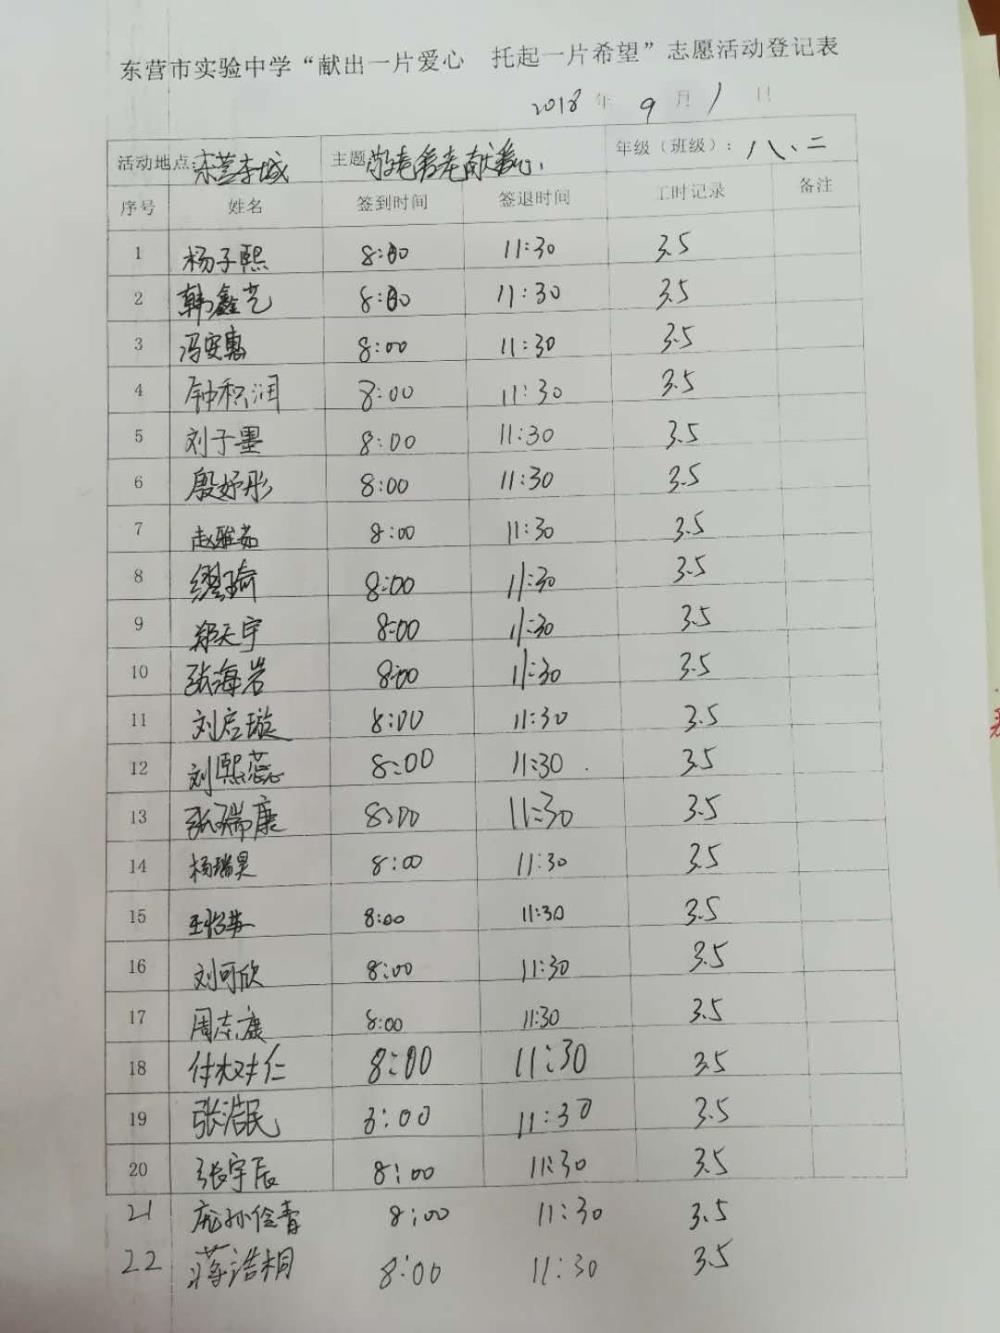 东营市实验中学“献出一片爱心 托起一片希望”志愿活动登记表
2018年 9月 1日
活动地点: 东营李城 主题 敬老爱老献爱心. 年级（班级）: 八、二
序号 姓名 签到时间 签退时间 工时记录 备注
1 杨子熙 8:00 11:30 3.5
2 韩鑫艺 8:00 11:30 3.5
3 冯安惠 8:00 11:30 3.5
4 钟积润 8:00 11:30 3.5
5 刘子墨 8:00 11:30 3.5
6 殷妤彤 8:00 11:30 3.5
7 赵雅茹 8:00 11:30 3.5
8 缪琦 8:00 11:30 3.5
9 郑天宇 8:00 11:30 3.5
10 张海岩 8:00 11:30 3.5
11 刘启璇 8:00 11:30 3.5
12 刘熙蕊 8:00 11:30 3.5
13 张瑞康 8:00 11:30 3.5
14 杨瑞昊 8:00 11:30 3.5
15 王怡苒 8:00 11:30 3.5
16 刘可欣 8:00 11:30 3.5
17 周志康 8:00 11:30 3.5
18 付树仁 8:00 11:30 3.5
19 张浩民 8:00 11:30 3.5
20 张宇辰 8:00 11:30 3.5
21 庞孙俭青 8:00 11:30 3.5
22 蒋浩桐 8:00 11:30 3.5